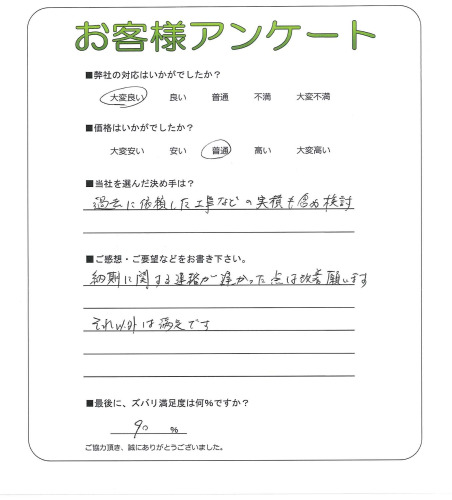 お客様アンケート
■弊社の対応はいかがでしたか？
大変良い 良い 普通 不満 大変不満
■価格はいかがでしたか？
大変安い 安い 普通 高い 大変高い
■当社を選んだ決め手は？
過去に依頼した工事などの実積も含め検討
■ご感想・ご要望などをお書き下さい。
納期に関する連絡が遅かった点は改善願います
それ以外は満足です
■最後に、ズバリ満足度は何%ですか？
90 %
ご協力頂き、誠にありがとうございました。